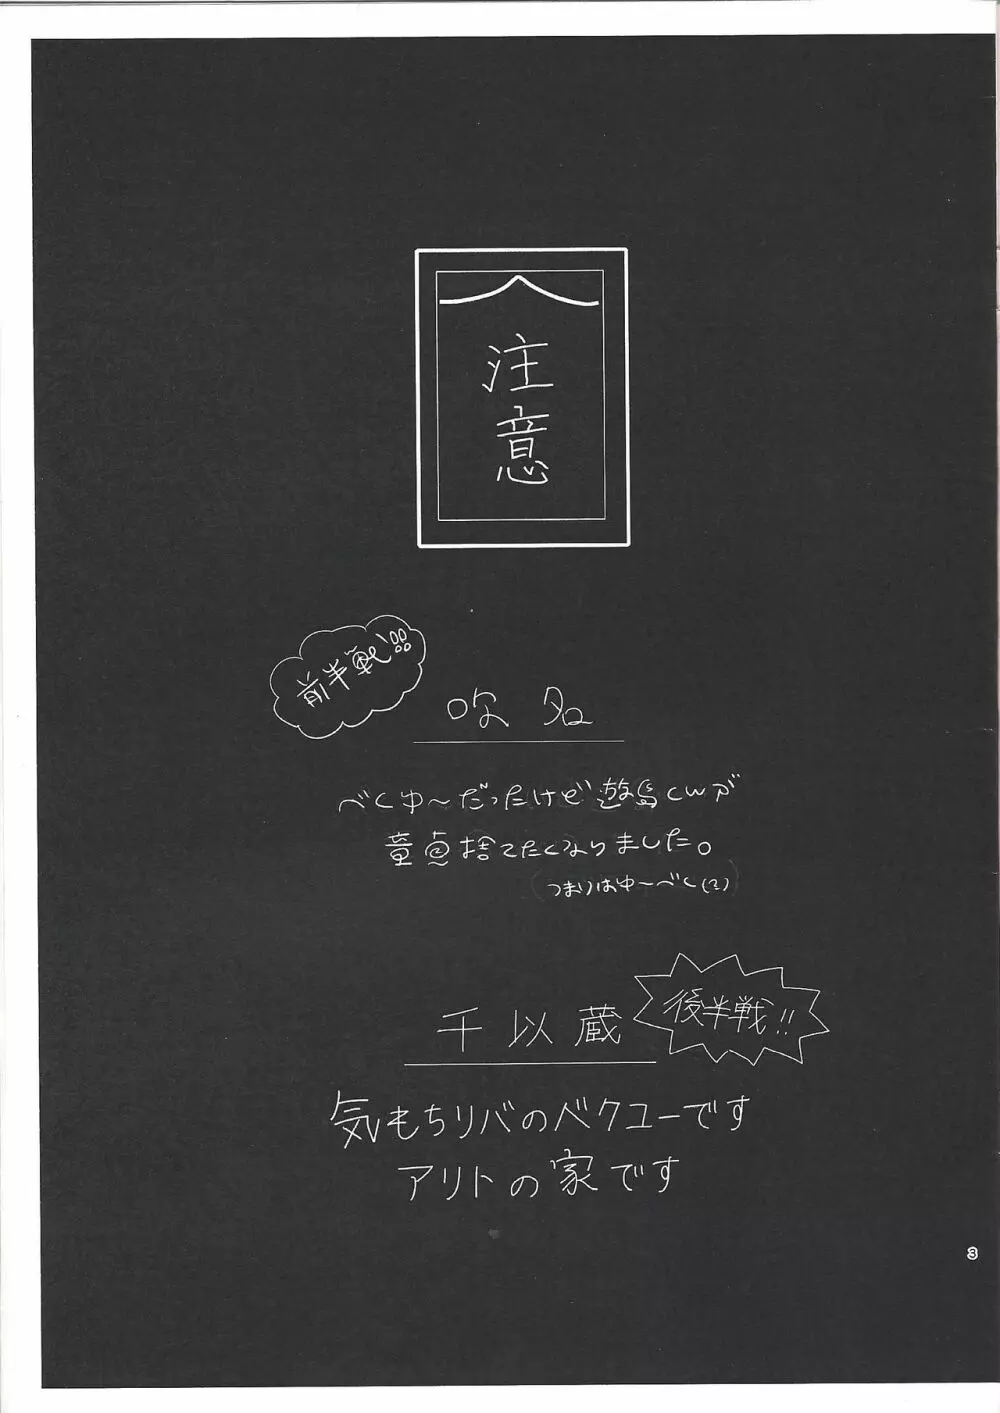 注意
前半戦!!
吹名
べくゆ〜だったけど遊馬くんが
童貞捨てたくなりました。
つまりはゆ〜べく(?)
千以蔵
後半戦!!
気もちリバのベクユーです
アリトの家です
3